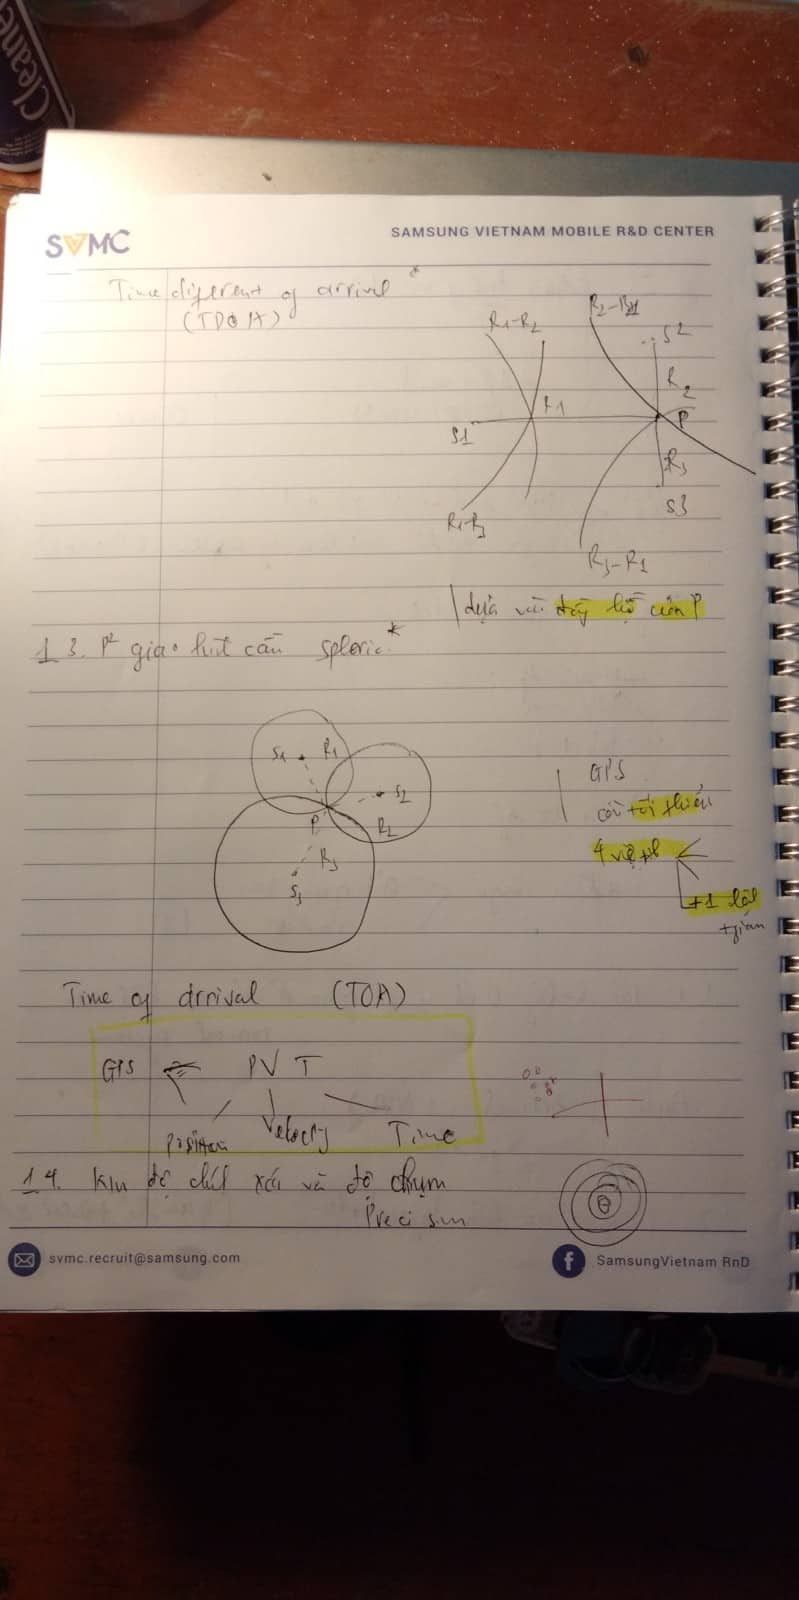 Cleane
SVMC
SAMSUNG VIETNAM MOBILE R&D CENTER
Time diferent of arrival *
(TDOA)
R1-R2
R2-R1
S2
R2
R1
P
S1
R3
S3
R1-R3
R3-R1
dựa vào đồng hồ của P
1 3. P² giao hút cầu spleric *
S1 R1
S2
R2
P
R3
S3
GPS
cần tối thiểu
4 vệ tinh
+1 thời
gian
Time of arrival (TOA)
GPS PV T
position Velocity Time
1 4. độ chính xác và độ chụm
Precisim
svmc.recruit@samsung.com
f SamsungVietnam RnD